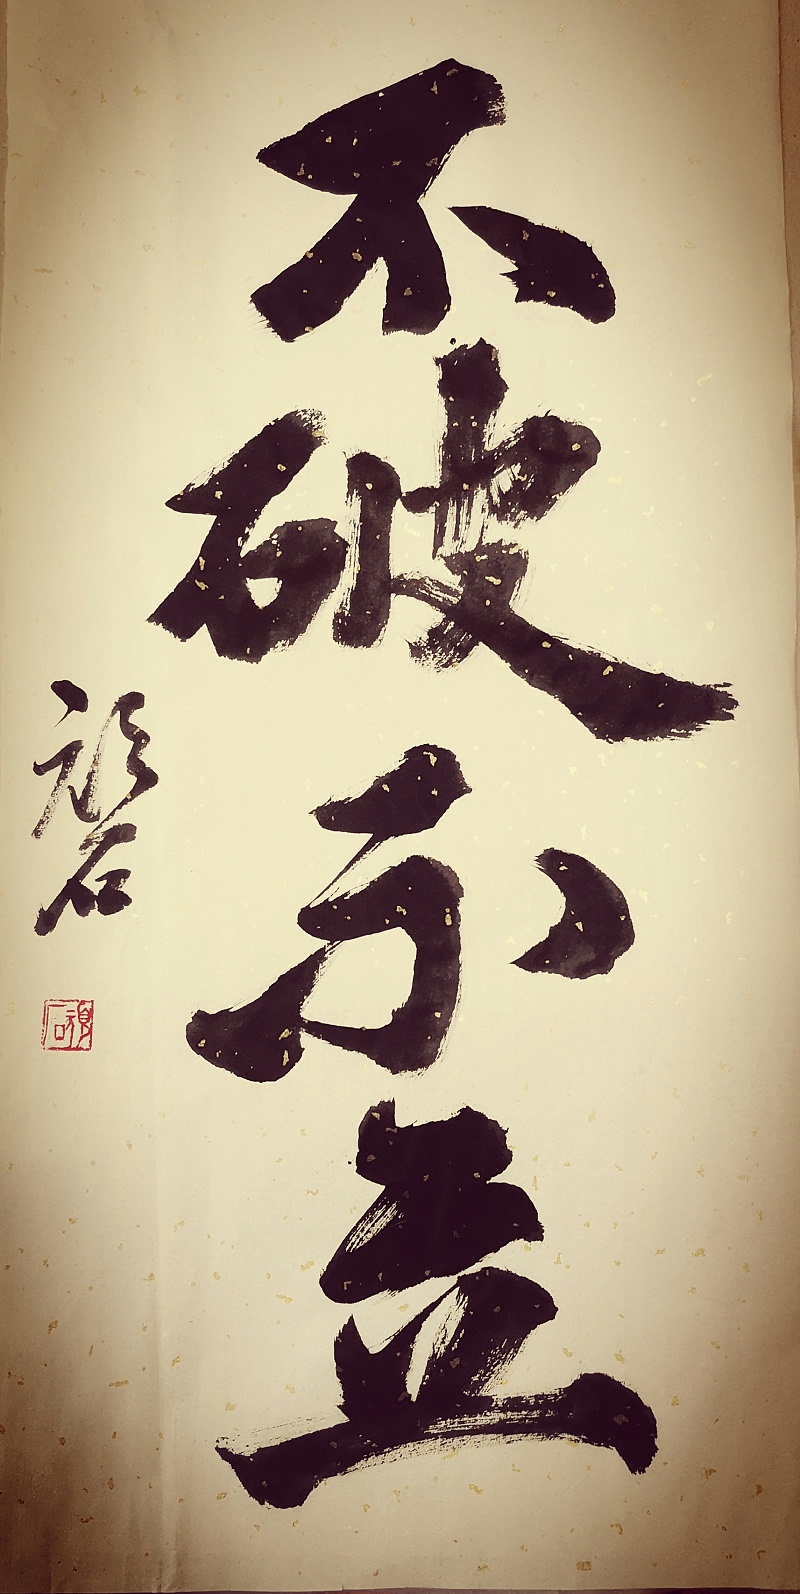 不破不立
石